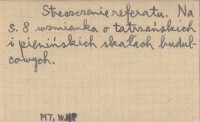 Streszczenie referatu. Na
s. 8 wzmianka o tatrzańskich
i pienińskich skałach budul-
cowych.
MT, W